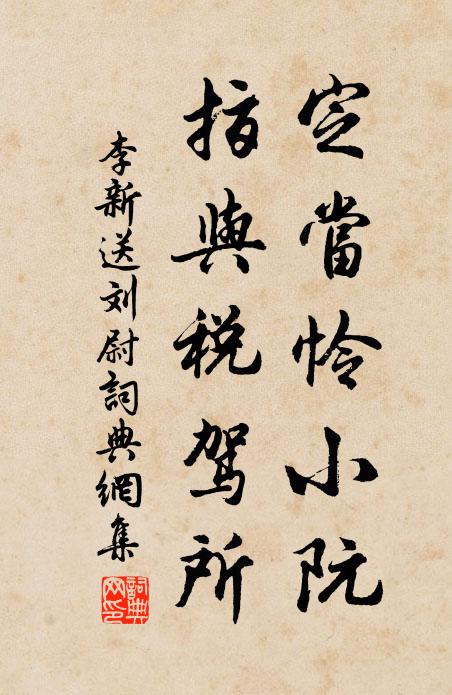 定當怜小阮
指與税駕所
李新送刘尉詞典網集
詞典
网印